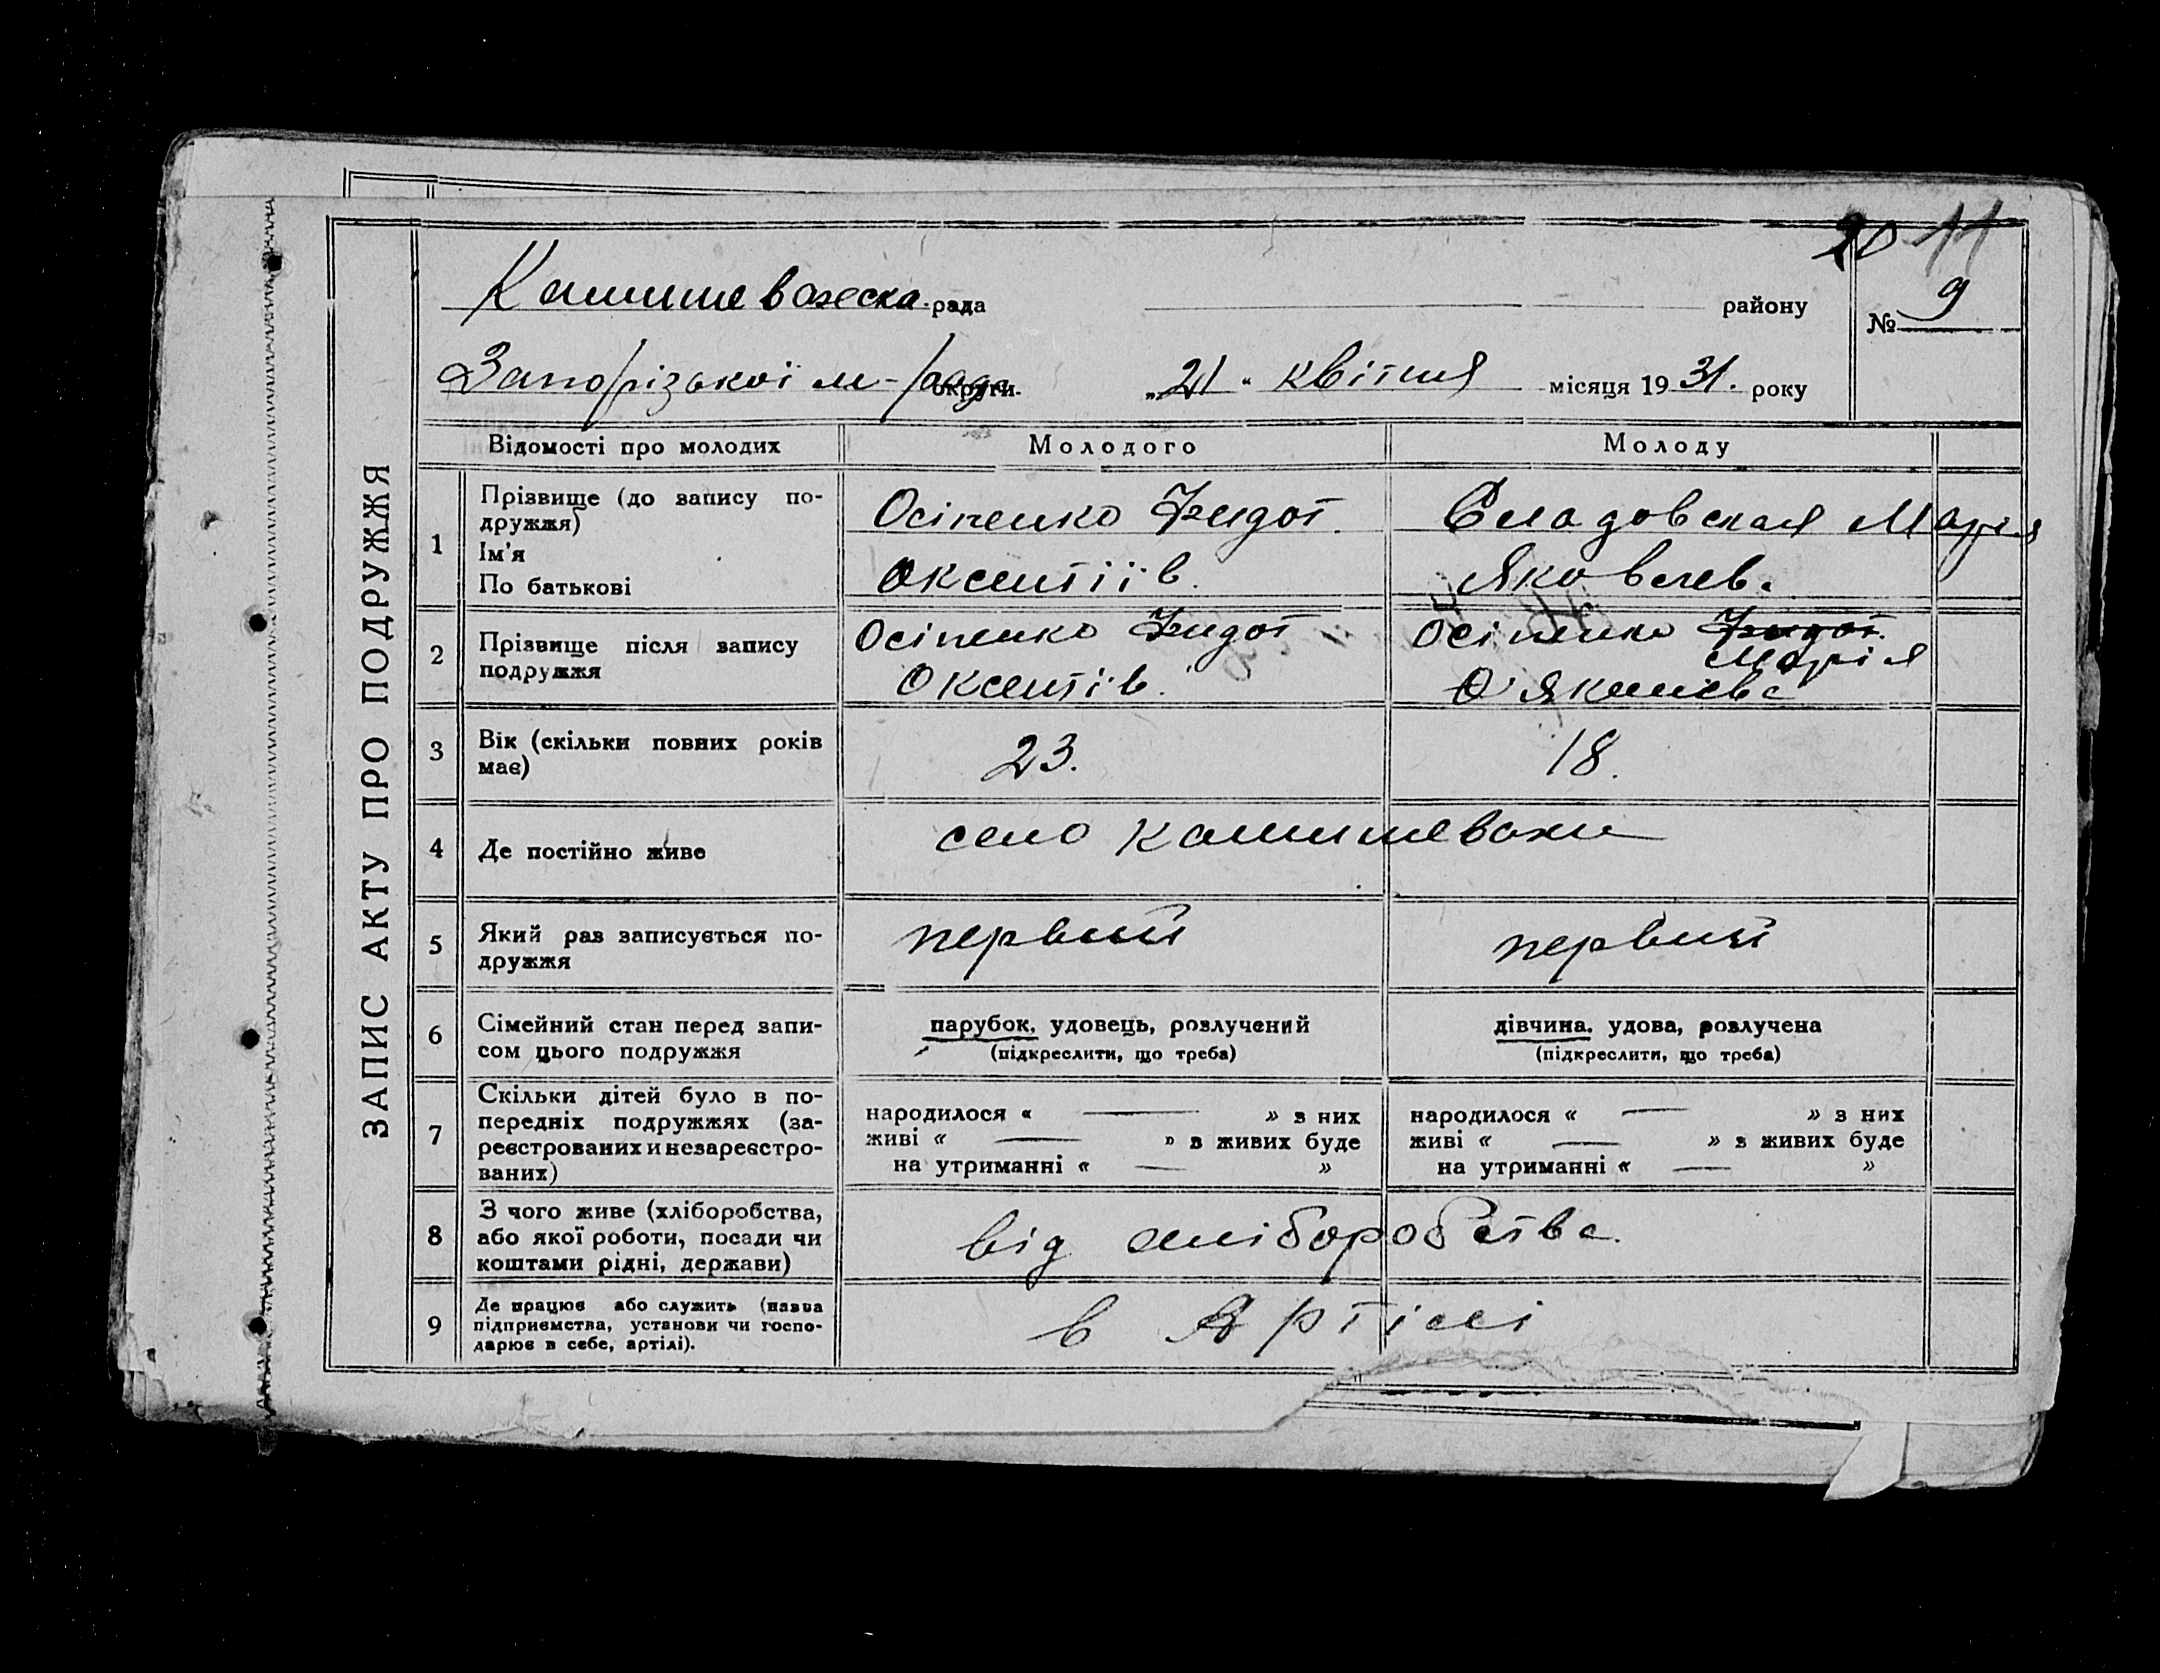 ЗАПИС АКТУ ПРО ПОДРУЖЖЯ
20 11
Камишеважеска рада району № 9
Запорізької м-рада округи. „21“ квітня місяця 1931. року
Відомості про молодих Молодого Молоду
1 Прізвище (до запису по-
дружжя)
Ім'я
По батькові
Осіпенко Федот.
Оксентіїв.
Сладовская Марія
Яковлев.
2 Прізвище після запису
подружжя
Осіпенко Федот
Оксентів.
Осіпенко Федот.
Марія
3 Вік (скільки повних років
має)
23. 18.
4 Де постійно живе
село Камишеваха
5 Який раз записується по-
дружжя
первий первий
6 Сімейний стан перед запи-
сом цього подружжя
парубок, удовець, розлучений
(підкреслити, що треба)
дівчина, удова, розлучена
(підкреслити, що треба)
7 Скільки дітей було в по-
передніх подружжях (за-
реєстрованих и незареєстро-
ваних)
народилося « — » з них
живі « — » з живих буде
на утриманні « — »
народилося « — » з них
живі « — » з живих буде
на утриманні « — »
8 З чого живе (хліборобства,
або якої роботи, посади чи
коштами рідні, держави)
від хліборобства.
9 Де працює або служить (назва
підприємства, установи чи госпо-
дарює в себе, артілі).
в Артілі